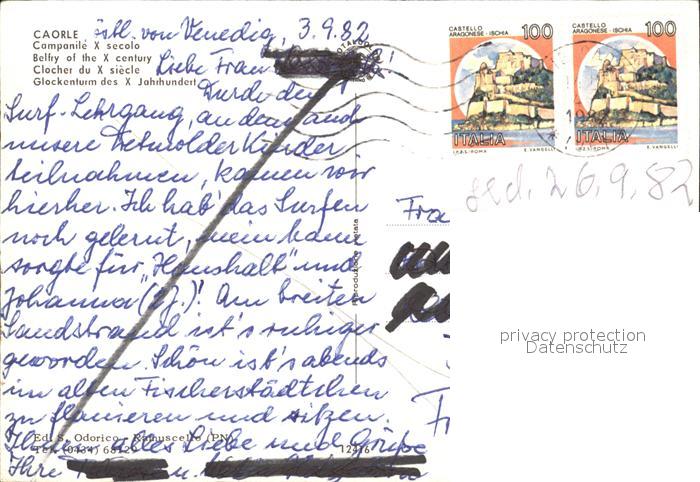 CAORLE östl. von Venedig, 3.9.82
Campanile X secolo
Belfry of the X century
Clocher du X siècle
Glockenturm des X Jahrhundert
Liebe Frau
Durch den
Surf-Lehrgang, an dem auch
unsere Detmolder Kinder
teilnahmen, kamen wir
hierher. Ich hab' das Surfen
noch gelernt, mein Mann
sorgte für „Haushalt" und
Johanna (2J.)! Am breiten
Landstrand ist's ruhiger
geworden. Schön ist's abends
im alten Fischerstädtchen
zu flanieren und sitzen.
Ihnen alles Liebe und Grüße
Ihre
Ed. S. Odorico - Ramuscello (PN)
Tel. (0434) 68129
12416
Riproduzione vietata
CASTELLO
ARAGONESE - ISCHIA 100
ITALIA
I.P.Z.S. ROMA E. VANGELLI
CASTELLO
ARAGONESE - ISCHIA 100
ITALIA
I.P.Z.S. ROMA E. VANGELLI
26.9.82
Fra
privacy protection
Datenschutz